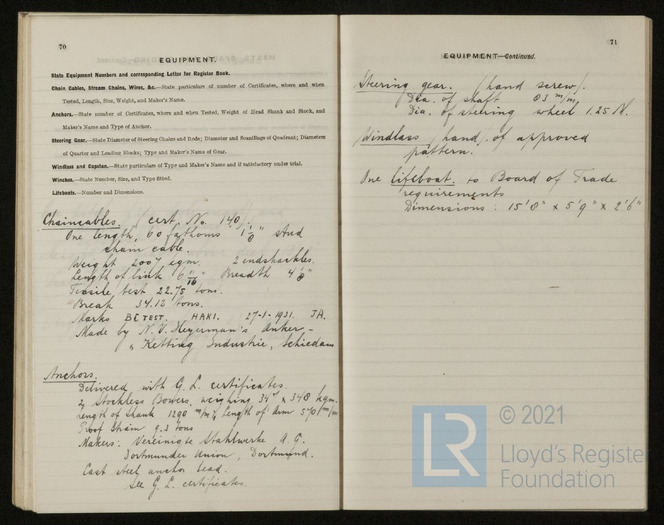 70
EQUIPMENT.
State Equipment Numbers and corresponding Letter for Register Book.
Chain Cables, Stream Chains, Wires, &c.—State particulars of number of Certificates, where and when
Tested, Length, Size, Weight, and Maker's Name.
Anchors.—State number of Certificates, where and when Tested, Weight of Head Shank and Stock, and
Maker's Name and Type of Anchor.
Steering Gear.—State Diameter of Steering Chains and Rods; Diameter and Scantlings of Quadrant; Diameters
of Quarter and Leading Blocks; Type and Maker's Name of Gear.
Windlass and Capstan.—State particulars of Type and Maker's Name and if satisfactory under trial.
Winches.—State Number, Size, and Type fitted.
Lifeboats.—Number and Dimensions.
Chaincables. cert. No. 140
One length, 60 fathoms stud
cham cable.
Weight 2007 kgm. 2 endshackles.
Length of link Breadth
Tensile test 22.75 tons.
Break 34.12 tons.
Marks BE TEST. HAKI. 27-1-1931. JA.
Made by N.V. Heyerman's Anker-
" Ketting Industrie, Schiedam
Anchors.
Delivered with G.L. certificates.
2 Stockless Bowers, weighing 347 & 348 kgm.
Length of shank 1290 m/m, length of arm 570 m/m
Proof Strain 9.3 tons
Makers: Vereinigte Stahlwerke A.G.
Dortmunder Union, Dortmund.
Cast steel anchor head.
See G.L. certificates.
71
EQUIPMENT—Continued.
Steering gear. (hand screw).
Dia. of shaft 83 m/m
Dia. of steering wheel 1.25 M.
Windlass (hand) of approved
pattern.
One lifeboat. to Board of Trade
requirements
Dimensions: 15'0" x 5'9" x 2'6"
LR
© 2021
Lloyd's Register
Foundation